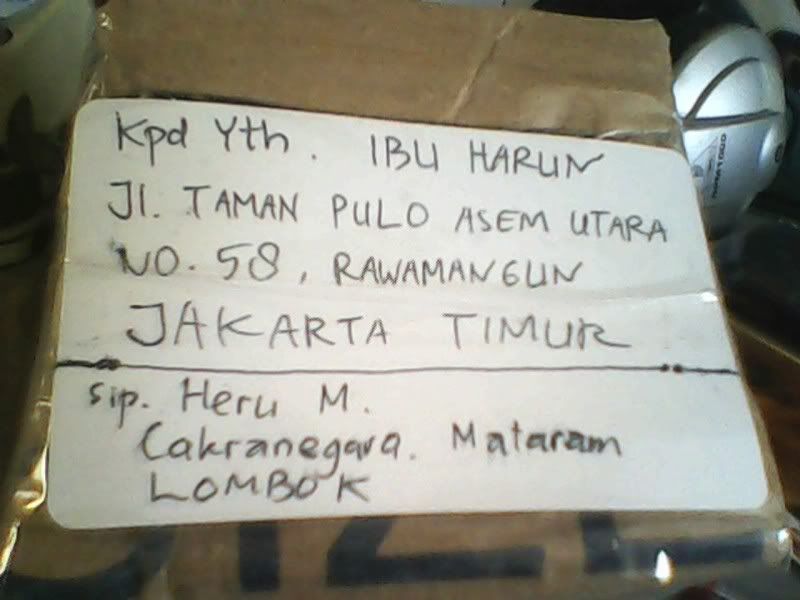 Kpd Yth. IBU HARUN
Jl. TAMAN PULO ASEM UTARA
NO. 58, RAWAMANGUN
JAKARTA TIMUR
Sip. Heru M.
Cakranegara. Mataram
LOMBOK